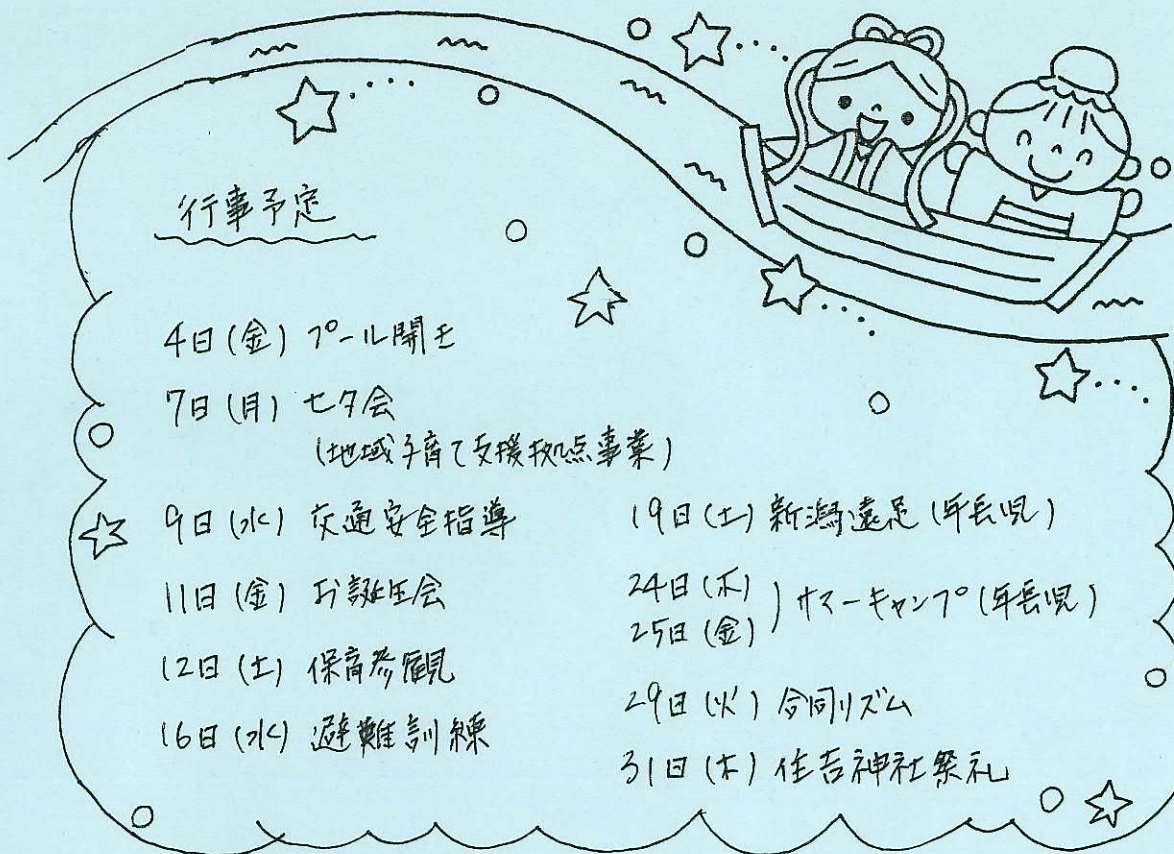 行事予定
4日(金) プール開き
7日(月) 七夕会
(地域子育て支援拠点事業)
9日(水) 交通安全指導
11日(金) お誕生会
12日(土) 保育参観
16日(水) 避難訓練
19日(土) 新潟遠足(年長児)
24日(木)
25日(金) ) サマーキャンプ(年長児)
29日(火) 合同リズム
31日(木) 住吉神社祭礼